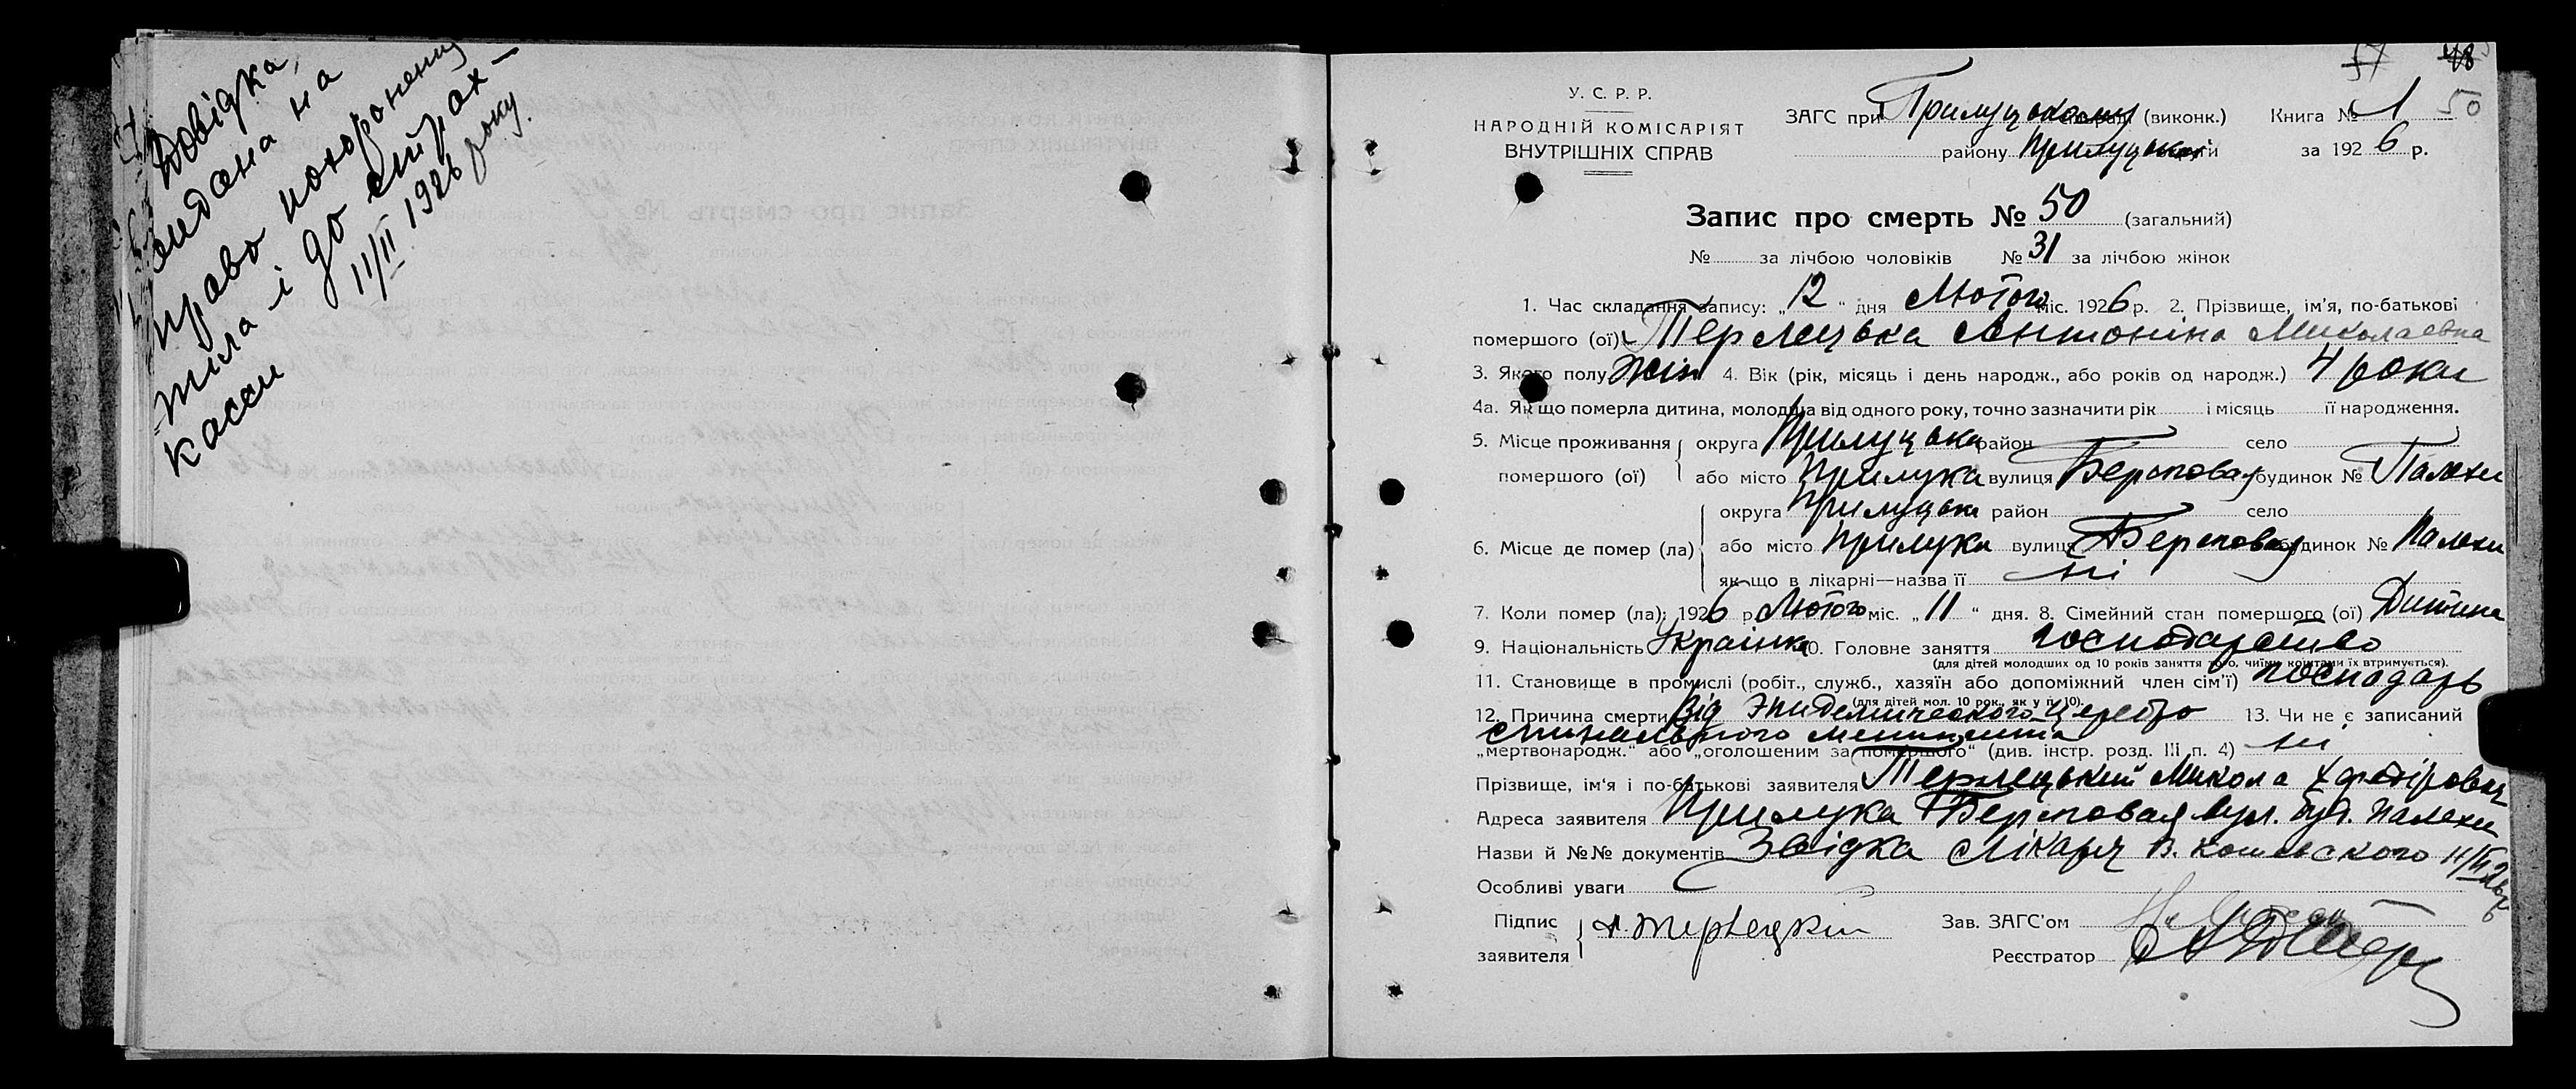 Довідка,
видана на
право похоронену
тила і до страх-
касси 11/II 1926 року.
48
50
У. С. Р. Р.
НАРОДНІЙ КОМІСАРІЯТ
ВНУТРІШНІХ СПРАВ
ЗАГС при Прилуцькому (виконк.) Книга № 1
району Прилуцької за 1926 р.
Запис про смерть № 50 (загальний)
№ за лічбою чоловіків № 31 за лічбою жінок
1. Час складання запису: „12" дня Лютого міс. 1926 р. 2. Прізвище, ім'я, по-батькові
помершого (ої) Терлецька Антоніна Миколаевна
3. Якого полу жін 4. Вік (рік, місяць і день народж., або років од народж.) 4 роки
4а. Якщо померла дитина, молодша від одного року, точно зазначити рік і місяць її народження.
5. Місце проживання помершого (ої) округа Прилуцька район село
або місто Прилука вулиця будинок №
6. Місце де помер (ла) округа Прилуцька район село
або місто Прилука вулиця будинок №
якщо в лікарні—назва її ні
7. Коли помер (ла): 1926 р Лютого міс. „11" дня. 8. Сімейний стан помершого (ої) Дитина
9. Національність Українка 10. Головне заняття господарство
(для дітей молодших од 10 років заняття того, чиїми коштами їх втримується).
11. Становище в промислі (робіт., служб., хазяїн або допоміжний член сім'ї) господарь
(для дітей мол. 10 рок., як у п. 10).
12. Причина смерти від эпидемического церебро 13. Чи не є записаний
спинального менингита
„мертвонародж." або „оголошеним за помершого" (див. інстр. розд. III п. 4) ні
Прізвище, ім'я і по-батькові заявителя Терлецький Микола
Адреса заявителя Прилука вул. буд.
Назви й №№ документів Звідка Лікаря 11/II 26 р
Особливі уваги
Підпис заявителя Зав. ЗАГС'ом
Реєстратор